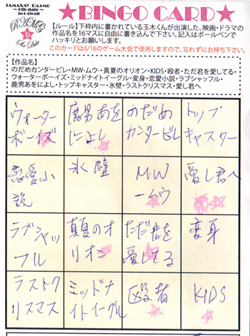 TAMAKI'S GAKKO
★BINGO CARD★
【ルール】下枠内に書かれている玉木くんが出演した、映画・ドラマの
作品名を16マスに自由に書き込んで下さい。上記から選んで記入はボールペンで
ハッキリとお願いします。
このカードは6/16のゲーム大会で使用しますので、忘れずにお持ち下さい。
【作品名】
のだめカンタービレ・MW-ムウ・真夏のオリオン・KIDS・殺者・ただ君を愛してる・
ウォーターボーイズ・ミッドナイトイーグル・変身・恋愛小説・ラブシャッフル・
鹿男あをによし・トップキャスター・氷壁・ラストクリスマス・愛し君へ
ウォーター
ボーイズ
鹿男あを
によし
のだめ
カンタービレ
トップ
キャスター
恋愛小
説
氷壁
MW
ームウ
愛し君へ
ラブシャッ
フル
真夏のオ
リオン
ただ君を
愛してる
変身
ラストク
リスマス
ミッドナ
イトイーグル
殺者
KIDS